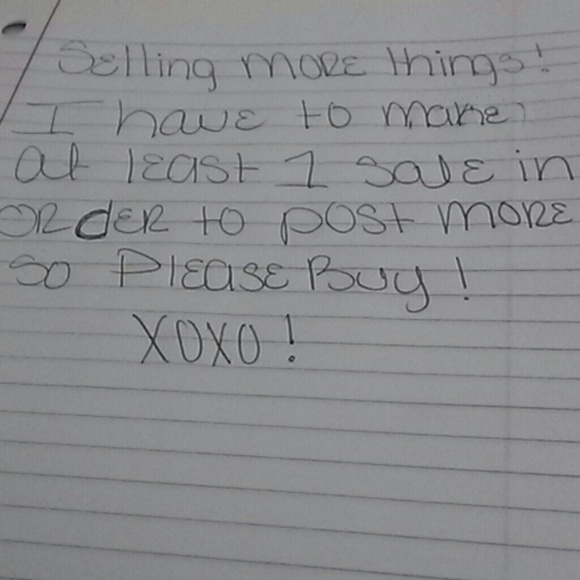 Selling more things!
I have to make
at least 1 sale in
order to post more
so Please Buy!
XOXO!